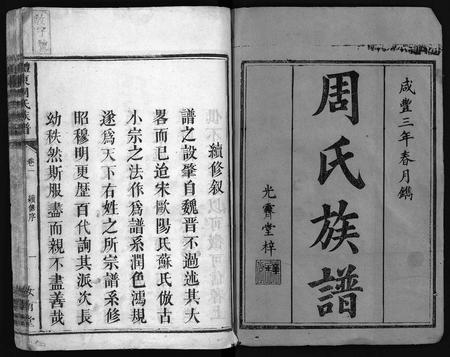 咸豐三年春月鐫
周氏族譜
光霽堂梓
續修叙
譜之設肇自魏晋不過述其大
畧而已迨宋歐陽氏蘇氏倣古
小宗之法作爲譜系潤色鴻規
遂爲天下有姓之所宗譜系修
昭穆明更歷百代詢其派次長
幼秩然斯服盡而親不盡善哉
周氏族譜
卷一
續修序
一